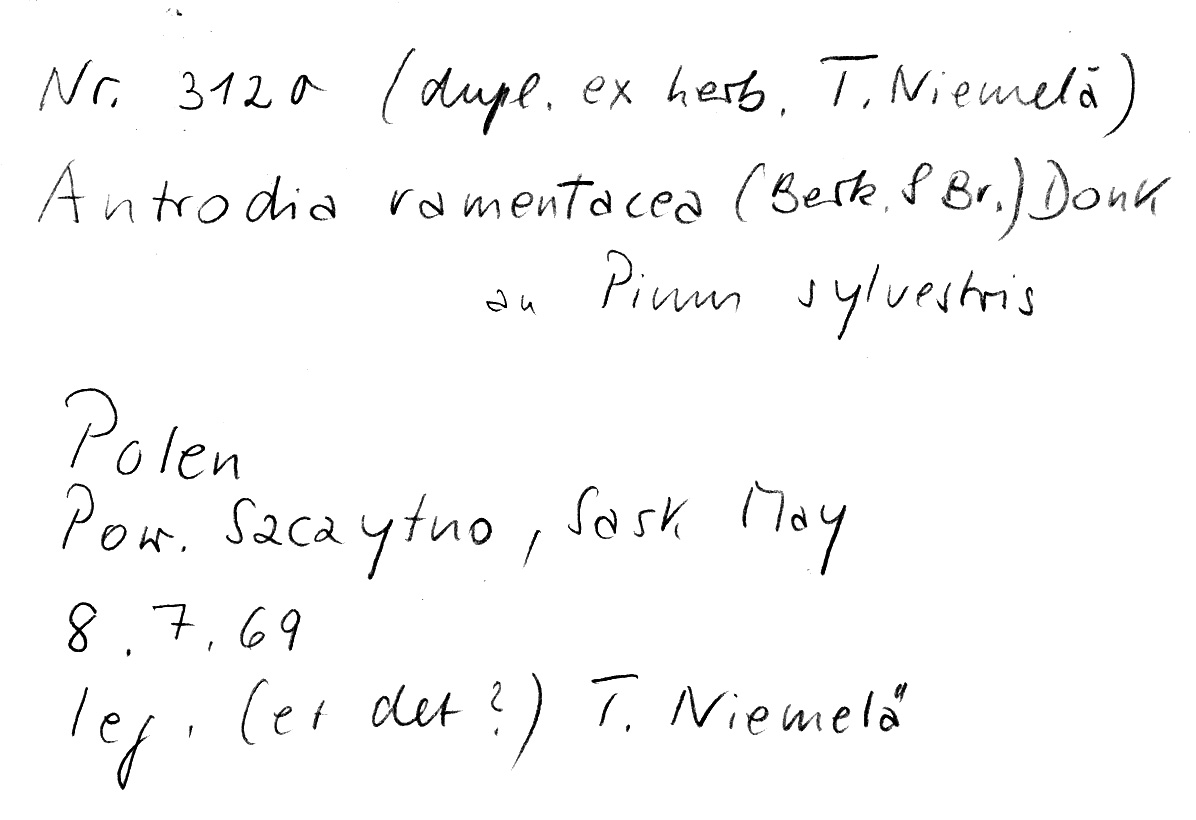 Nr. 312a (dupl. ex herb. T. Niemelä)
Antrodia ramentacea (Berk. & Br.) Donk
an Pinus sylvestris
Polen
Pow. Szcaytno, Sask May
8.7.69
leg. (et det?) T. Niemelä